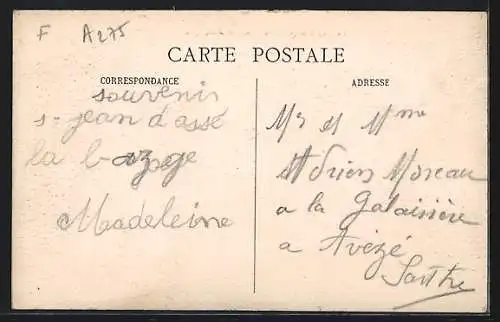 F A275
CARTE POSTALE
CORRESPONDANCE
souvenir
s-jean d'assé
la bazoge
Madeleine
ADRESSE
Mr et Mme
Adrien Moreau
a la Galaisière
a Avezé
Sarthe